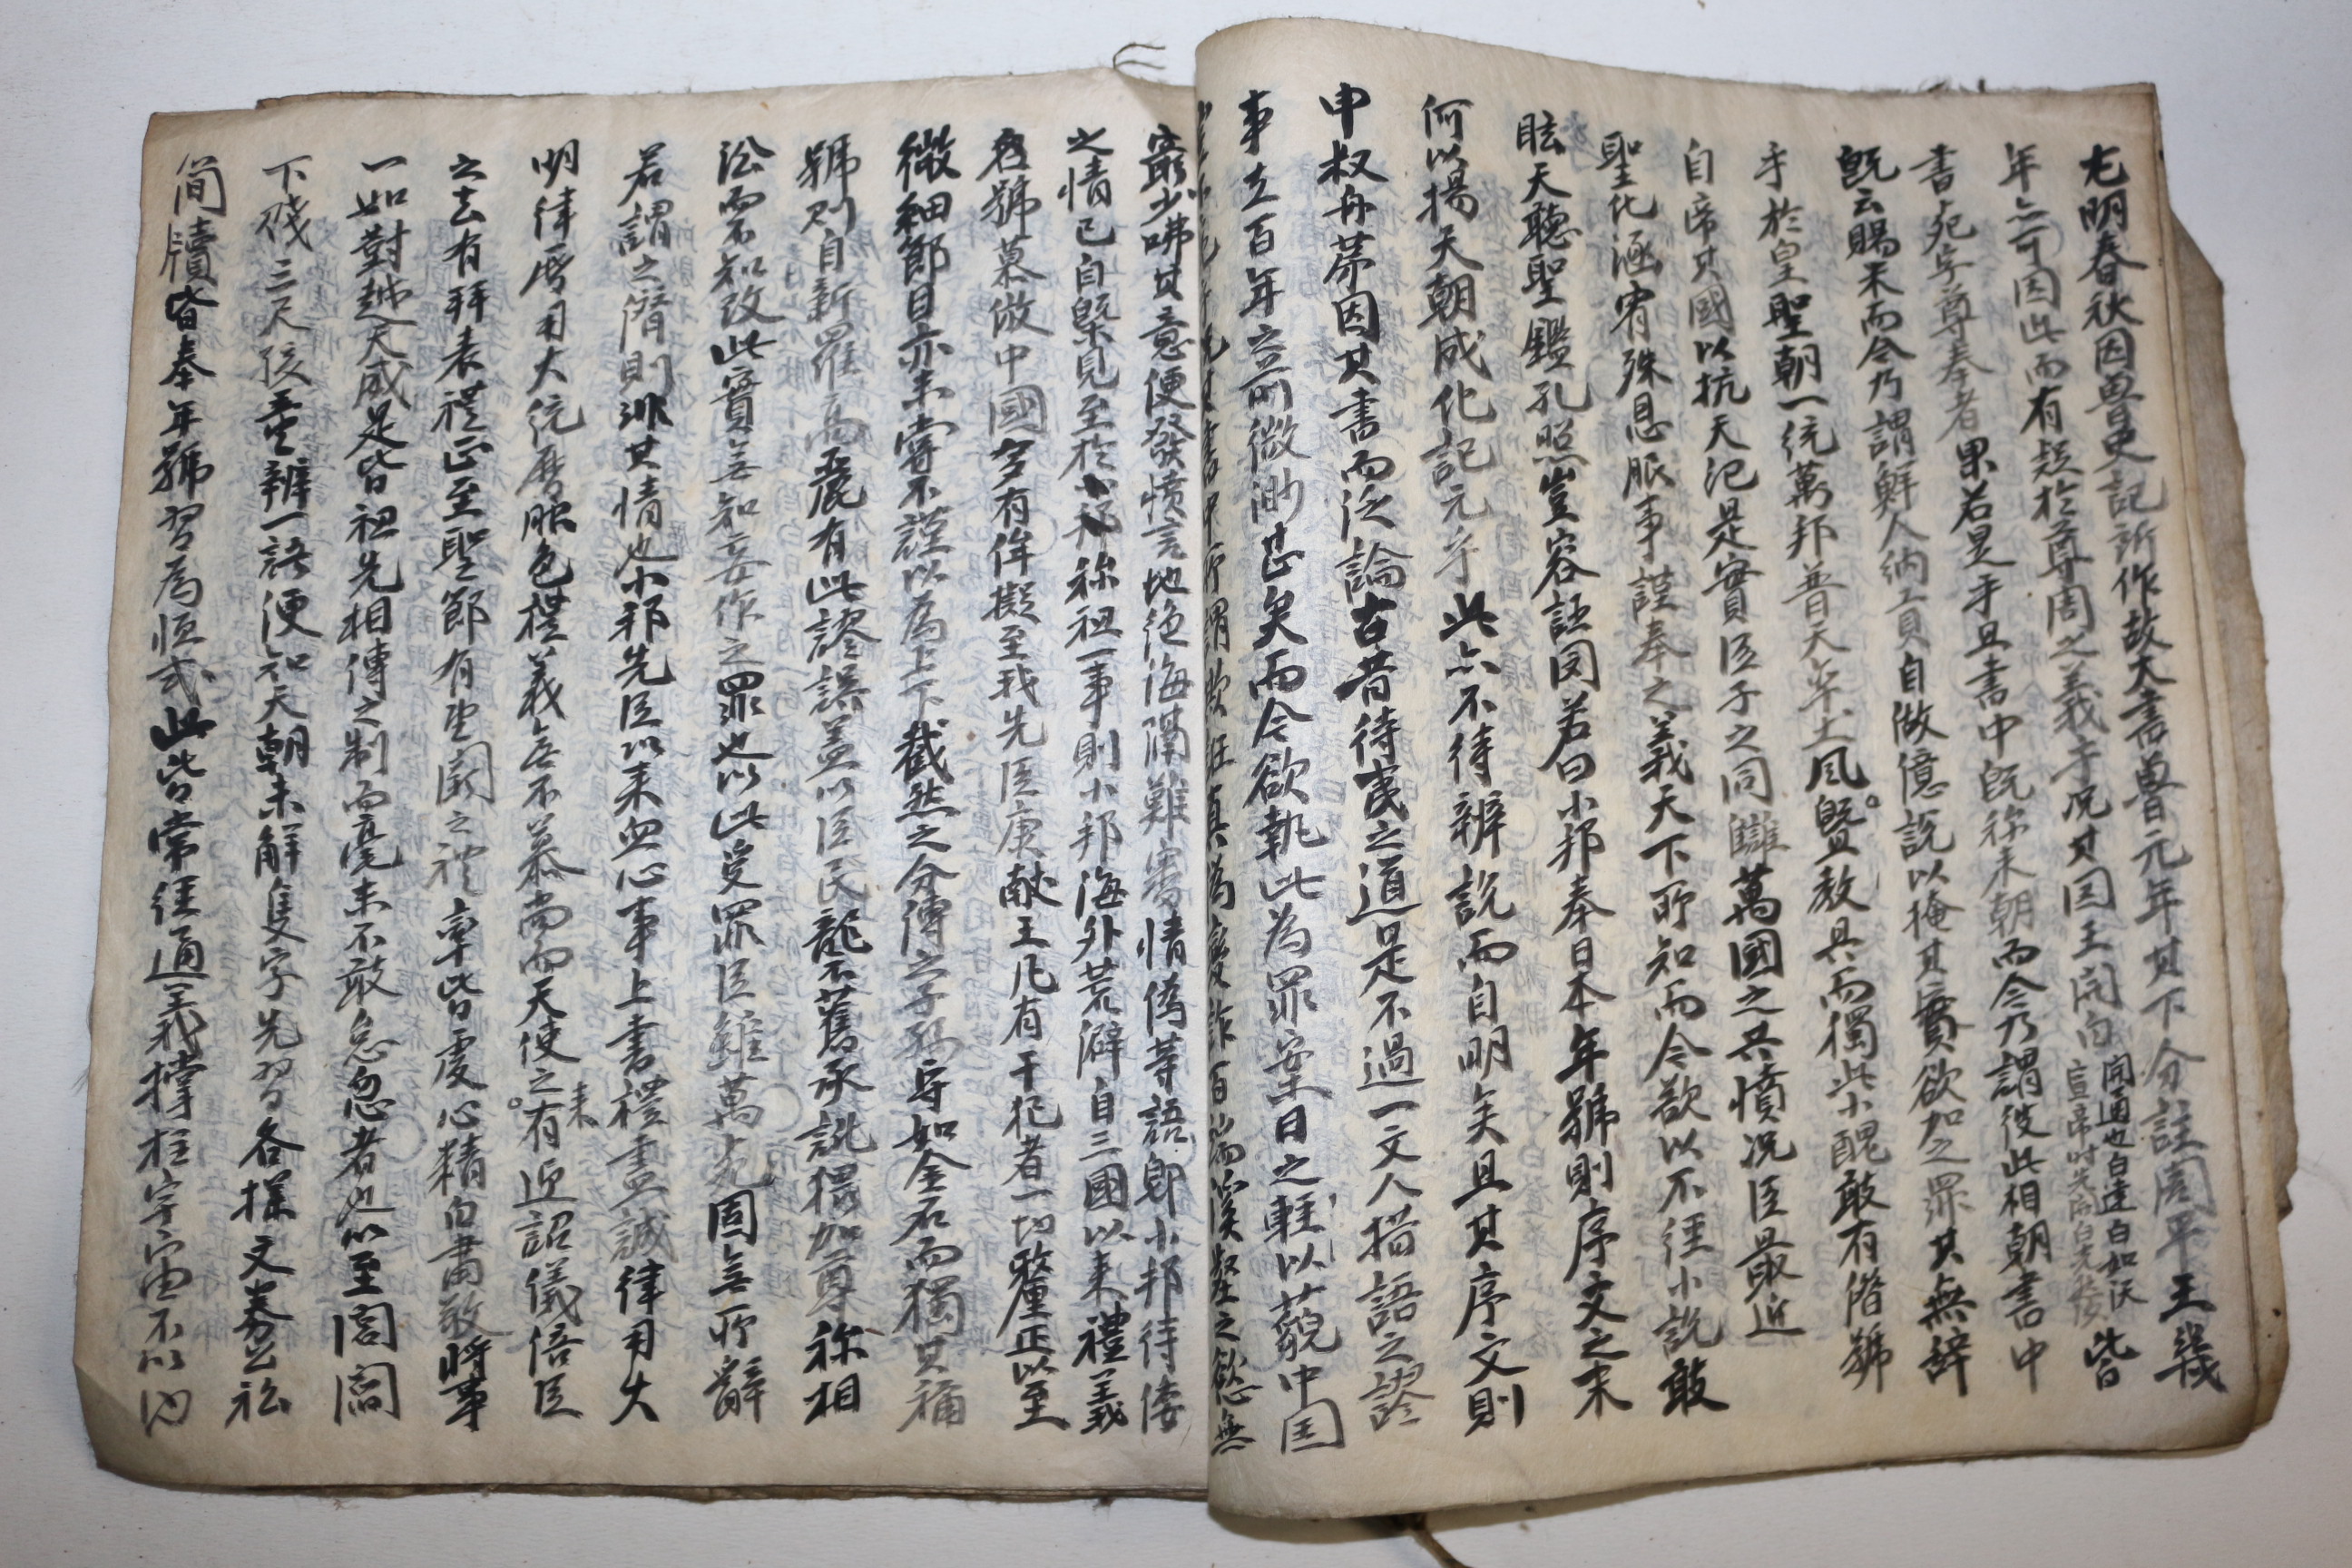 尤明春秋因魯史記所作故大書魯元年其下分註周平王幾
年亦可因此而有疑於尊周之義乎况其国王開白開通也白達白如沃宣帝時先白光皆
書宛字尊奉者果若是乎且書中旣称来朝而今乃謂彼此相朝書中
旣云賜米而今乃謂鮮人納貢自做億說以掩其實欲加之罪其無辞
乎於皇聖朝一統萬邦普天率土風曁敎具而獨此小醜敢有僭號
自帝其國以抗天氾是實臣子之同讎萬國之共憤况臣最近
聖化涵宥殊恩服事謹奉之義天下所知而今欲以不徑小說敢
眩天聽聖鑑孔照豈容誣罔若曰小邦奉日本年號則序文之末
何以揭天朝成化記元乎此亦不待辨說而自明矣且其序文則
申叔舟荐因其書而泛論古昔待夷之道是不過一文人措語之謬
事之百年之前微渺甚矣而今欲執此為罪案日之輕以藐中国
之情已自槩見至於小邦称祖一事則小邦海外荒僻自三國以来禮義
名號慕倣中國多有侔擬至我先臣康献王凡有干犯者一切釐正以至
微細節目亦未嘗不謹以為上下截然之分傳之子孫守如金石而獨其稱
號則自新羅高麗有此謬誤盖以臣民襲舊承訛猥加尊称相
沿而不知改此實無知妄作之罪也以此受罪臣雖萬死固無所辭
若謂之僭則非其情也小邦先臣以来血心事上書禮盡誠律用大
明律曆用大統曆服色禮義無不慕尚而天使之来有迎詔儀倍臣
之去有拜表禮正至聖節有望闕之禮率皆虔心精白肅敬將事
一如對越天威是皆祖先相傳之制而毫末不敢怠忽者也以至閭閻
下賤三尺孩童辨一語便知天朝未解隻字先習各樣文券公私
簡牘皆奉年號習為恒式此皆常徑通義撑柱宇宙不以内